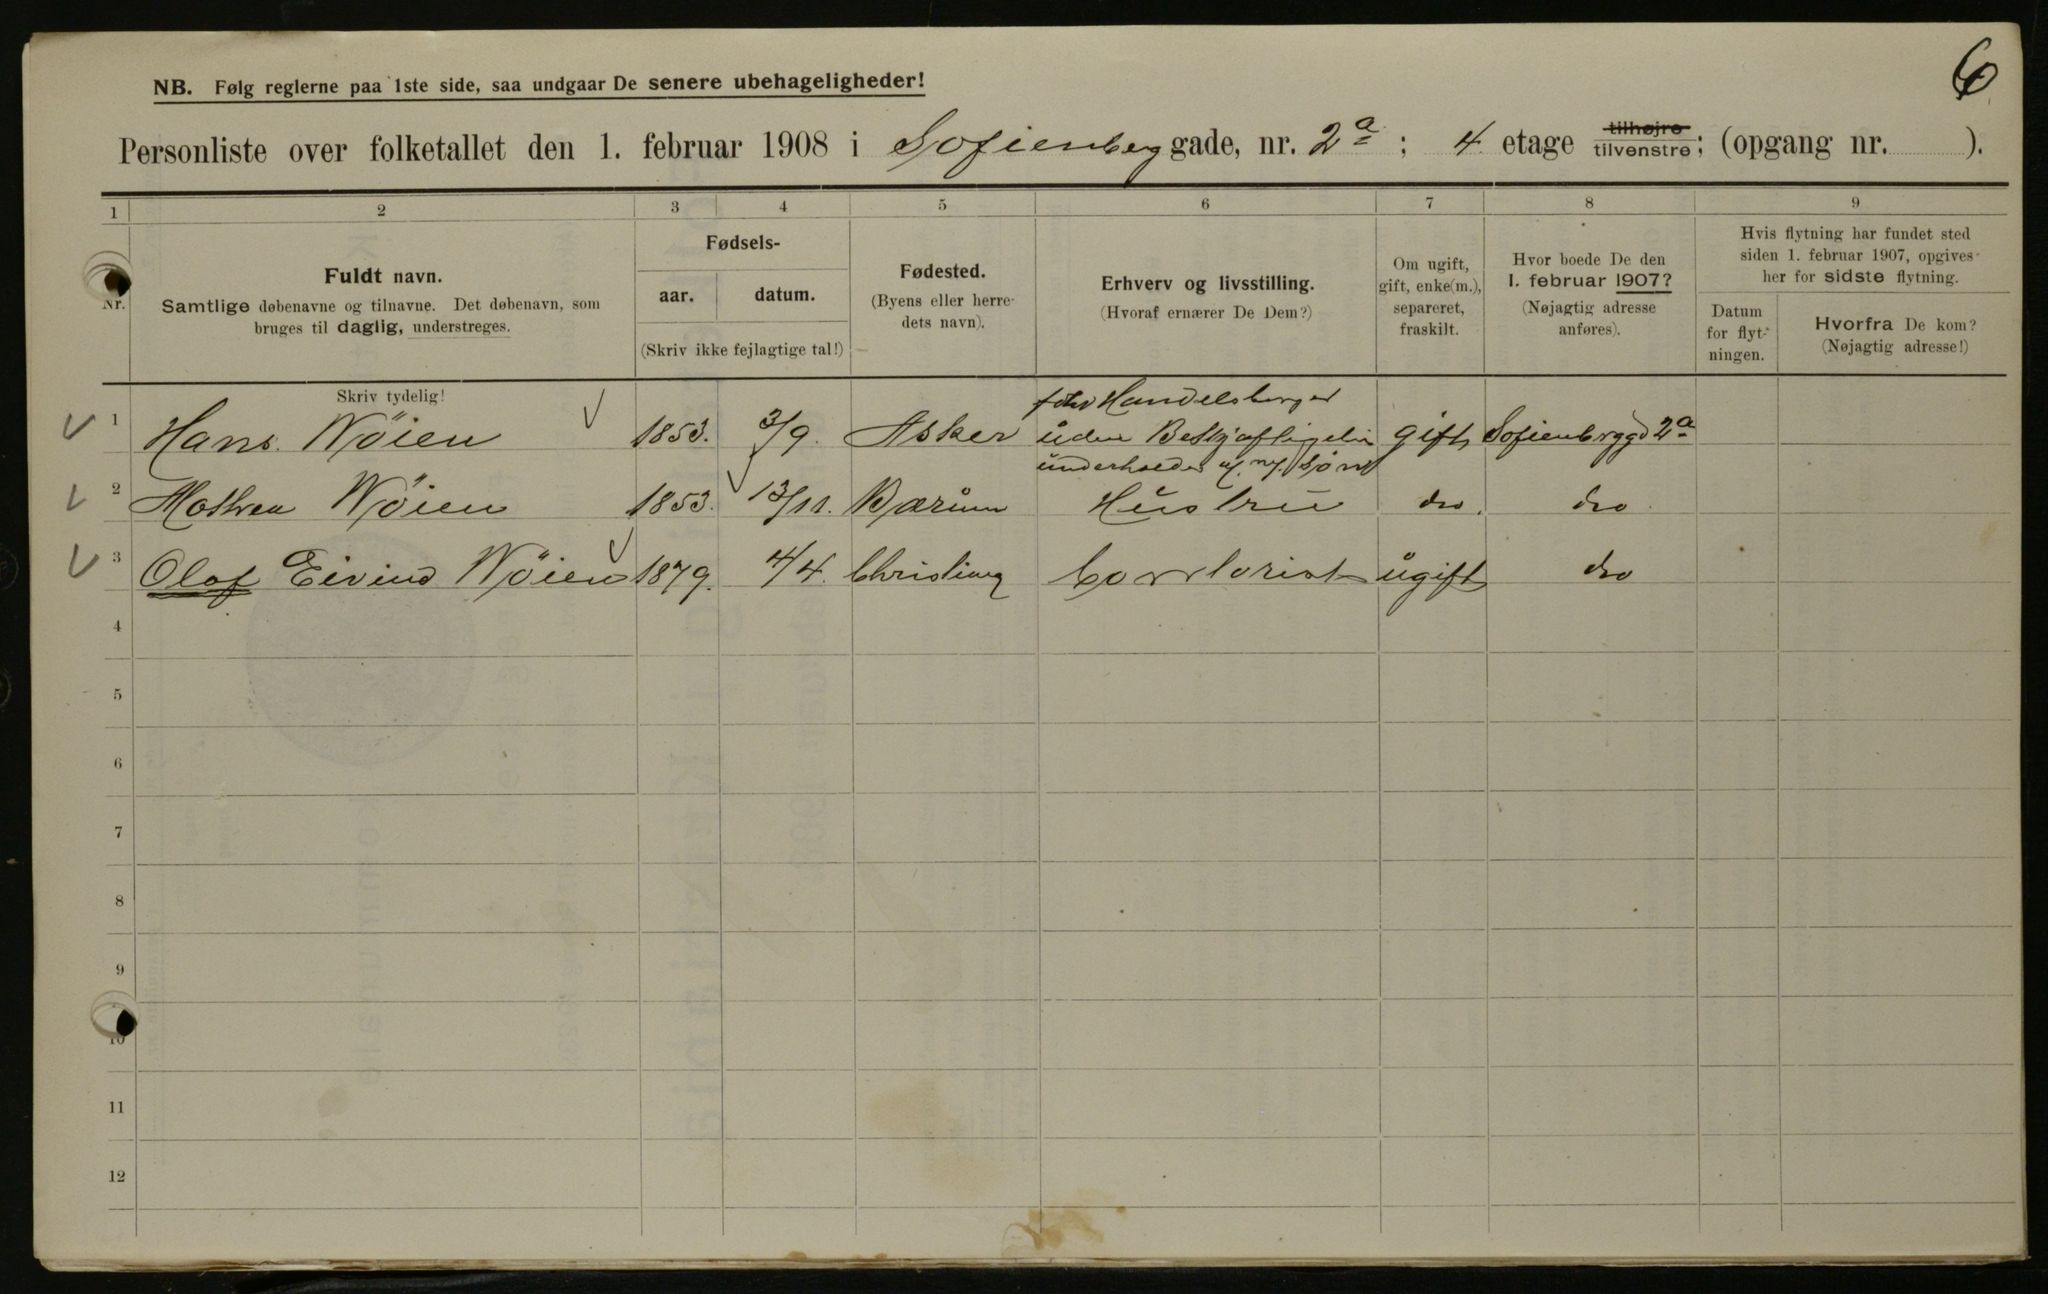 6
NB. Følg reglerne paa 1ste side, saa undgaar De senere ubehageligheder!
Personliste over folketallet den 1. februar 1908 i Sofienberg gade, nr. 2a ; 4 etage tilhøjre tilvenstre; (opgang nr. ).
1 2 3 4 5 6 7 8 9
Nr.
Fuldt navn.
Samtlige døbenavne og tilnavne. Det døbenavn, som
bruges til daglig, understreges.
Fødsels-
aar. datum.
(Skriv ikke fejlagtige tal!)
Fødested.
(Byens eller herre-
dets navn).
Erhverv og livsstilling.
(Hvoraf ernærer De Dem?)
Om ugift,
gift, enke(m.),
separeret,
fraskilt.
Hvor boede De den
1. februar 1907?
(Nøjagtig adresse
anføres).
Hvis flytning har fundet sted
siden 1. februar 1907, opgives
her for sidste flytning.
Datum
for flyt-
ningen.
Hvorfra De kom?
(Nøjagtig adresse!)
Skriv tydelig!
Handelsborger
1 Hans Wöien 1853. 3/9. Asker uden gift Sofienbggd 2a
underholdes af
2 Wöien 1853. 13/11. Bærum Hustru do. do
3 Olaf Eivind Wöien 1879. 4/4. Contorist ugift do
4
5
6
7
8
9
10
11
12